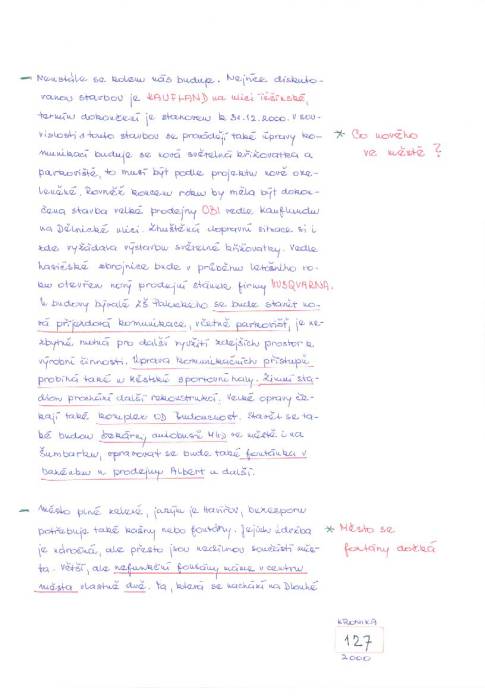 — Neustále se kolem nás buduje. Nejvíce diskuto-
vanou stavbou je KAUFLAND na ulici Těšínské,
termín dokončení je stanoven k 31.12.2000. V sou-
vislosti s touto stavbou se provádějí také úpravy ko-
munikací buduje se nová světelná křižovatka a
parkoviště, to musí být podle projektu nově oze-
leněné. Rovněž koncem roku by měla být dokon-
čena stavba velké prodejny OBI vedle Kauflandu
na Dělnické ulici. Zhuštěná dopravní situace si i
zde vyžádala výstavbu světelné křižovatky. Vedle
hasičské zbrojnice bude v průběhu letošního ro-
ku otevřen nový prodejní stánek firmy HUSQVARNA.
U budovy bývalé ZŠ Palackého se bude stavět no-
vá příjezdová komunikace, včetně parkovišť, je ne-
zbytně nutná pro další využití zdejších prostor a
výrobní činnosti. Úprava komunikačních přístupů
probíhá také u Městské sportovní haly. Zimní sta-
dion prochází další rekonstrukcí. Velké opravy če-
kají také komplex OD Budoucnost. Stavět se ta-
ké budou čekárny autobusů MHD ve městě i na
Šumbarku, opravovat se bude také fontánka v
bazénku u prodejny Albert a další.
* Co nového
ve městě?
— Město plné zeleně, jakým je Havířov, bezesporu
potřebuje také kašny nebo fontány. Jejich údržba
je náročná, ale přesto jsou nedílnou součástí měs-
ta. Větší, ale nefunkční fontány máme v centru
města vlastně dvě. Ta, která se nachází na Dlouhé
* Město se
fontány dočká
KRONIKA
127
2000